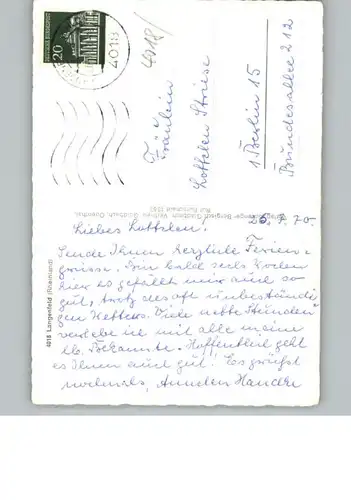 DEUTSCHE BUNDESPOST
20
4018
4018/
Fräulein
Lottchen Striese
1 Berlin 15
Bundesallee 212
4018 Langenfeld (Rheinland)
26.7.70.
Liebes Lottchen!
Sende Ihnen herzliche Ferien-
grüsse. Bin bald sechs Wochen
hier es gefällt mir auch so
gut, trotz des oft unbeständi
gen Wetters. Viele nette Stunden
verlebe ich mit alle meine
lb. Bekannte. Hoffentlich geht
es Ihnen auch gut! Es grüsst
nochmals,